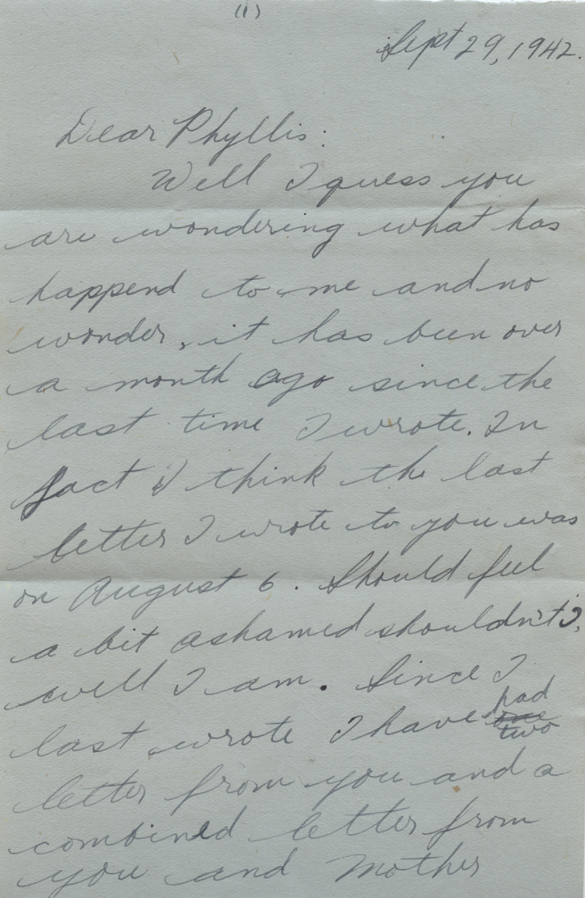 (1)
Sept 29, 1942.
Dear Phyllis:
Well I guess you
are wondering what has
happend to me and no
wonder, it has been over
a month ago since the
last time I wrote. In
fact I think the last
letter I wrote to you was
on August 6. Should feel
a bit ashamed shouldn't I,
well I am. Since I
last wrote I have had
two
letter from you and a
combined letter from
you and Mother